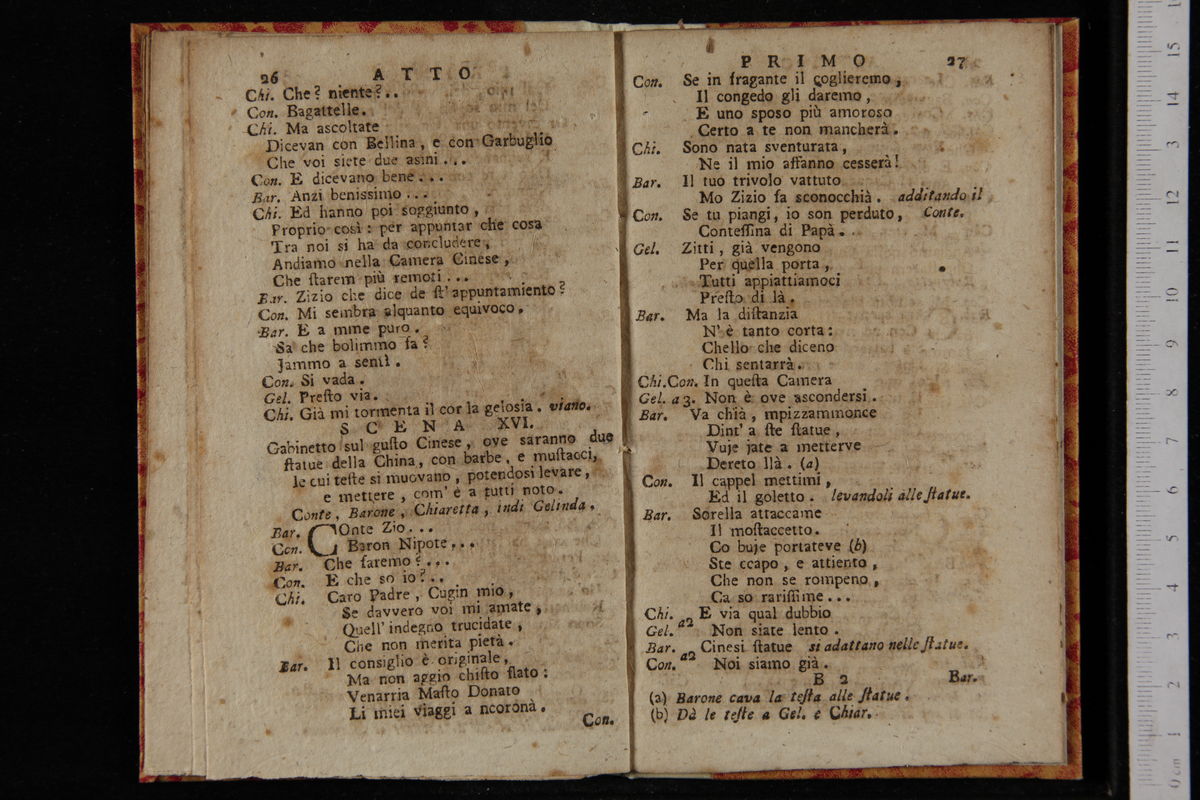 26 ATTO
Chi. Che? niente?..
Con. Bagattelle.
Chi. Ma ascoltate
Dicevan con Bellina, e con Garbuglio
Che voi siete due asini...
Con. E dicevano bene...
Bar. Anzi benissimo...
Chi. Ed hanno poi soggiunto,
Proprio così: per appuntar che cosa
Tra noi si ha da concludere,
Andiamo nella Camera Cinese,
Che ſtarem più remoti...
Bar. Zizio che dice de ſt' appuntamiento?
Con. Mi sembra alquanto equivoco.
Bar. E a mme puro.
Sa che bolimmo fa?
Jammo a sentì.
Con. Si vada.
Gel. Preſto via.
Chi. Già mi tormenta il cor la gelosia. viano.
SCENA XVI.
Gabinetto sul guſto Cinese, ove saranno due
ſtatue della China, con barbe, e muſtacci,
le cui teſte si muovano, potendosi levare,
e mettere, com' è a tutti noto.
Conte, Barone, Chiaretta, indi Gelinda.
Bar. COnte Zio...
Con. Baron Nipote...
Bar. Che faremo?...
Con. E che so io?...
Chi. Caro Padre, Cugin mio,
Se davvero voi mi amate,
Quell' indegno trucidate,
Che non merita pietà.
Bar. Il consiglio è originale,
Ma non aggio chiſto ſlato:
Venarria Maſto Donato
Li miei viaggi a ncoronà.
Con.
PRIMO 27
Con. Se in fragante il coglieremo,
Il congedo gli daremo,
E uno sposo più amoroso
Certo a te non mancherà.
Chi. Sono nata sventurata,
Ne il mio affanno cesserà!
Bar. Il tuo trivolo vattuto
Mo Zizio fa sconocchià. additando il
Con. Se tu piangi, io son perduto, Conte.
Conteſſina di Papà.
Gel. Zitti, già vengono
Per quella porta,
Tutti appiattiamoci
Preſto di là.
Bar. Ma la diſtanzia
N' è tanto corta:
Chello che diceno
Chi sentarrà.
Chi.Con. In queſta Camera
Gel. a 3. Non è ove ascondersi.
Bar. Va chià, mpizzammonce
Dint' a ſte ſtatue,
Vuje jate a metterve
Dereto llà. (a)
Con. Il cappel mettimi,
Ed il goletto. levandoli alle ſtatue.
Bar. Sorella attaccame
Il moſtaccetto.
Co buje portateve (b)
Ste ccapo, e attiento,
Che non se rompeno,
Ca so rariſſime...
Chi. E via qual dubbio
Gel. a2 Non siate lento.
Bar. Cinesi ſtatue si adattano nelle ſtatue.
Con. a2 Noi siamo già.
B 2 Bar.
(a) Barone cava la teſta alle ſtatue.
(b) Dà le teſte a Gel. e Chiar.